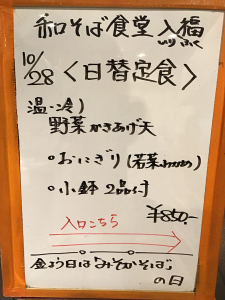 和そば食堂 入福
10/28 〈日替定食〉
温・冷)
野菜かきあげ天
○おにぎり(若菜わかめ)
○小鉢 2品付
¥850.-
入口こちら
金よう日は「みそかそば」
の日